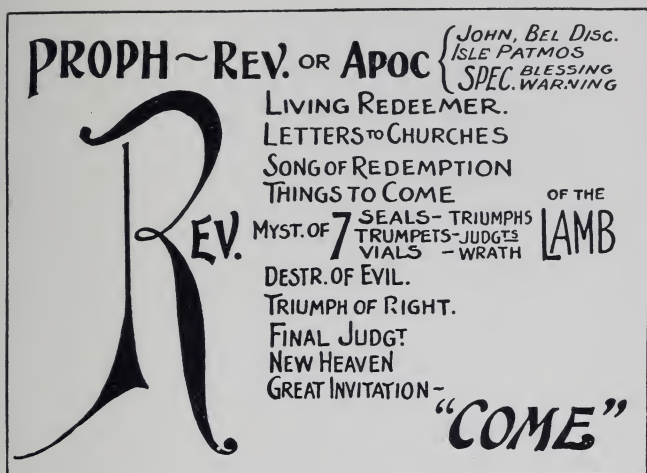 PROPH ~ REV. OR APOC { JOHN, BEL DISC.
ISLE PATMOS
SPEC. BLESSING
WARNING
LIVING REDEEMER.
LETTERS TO CHURCHES
SONG OF REDEMPTION
THINGS TO COME
REV. MYST. OF 7 SEALS - TRIUMPHS
TRUMPETS - JUDGTS
VIALS - WRATH
OF THE
LAMB
DESTR. OF EVIL.
TRIUMPH OF RIGHT.
FINAL JUDGT
NEW HEAVEN
GREAT INVITATION -
"COME"